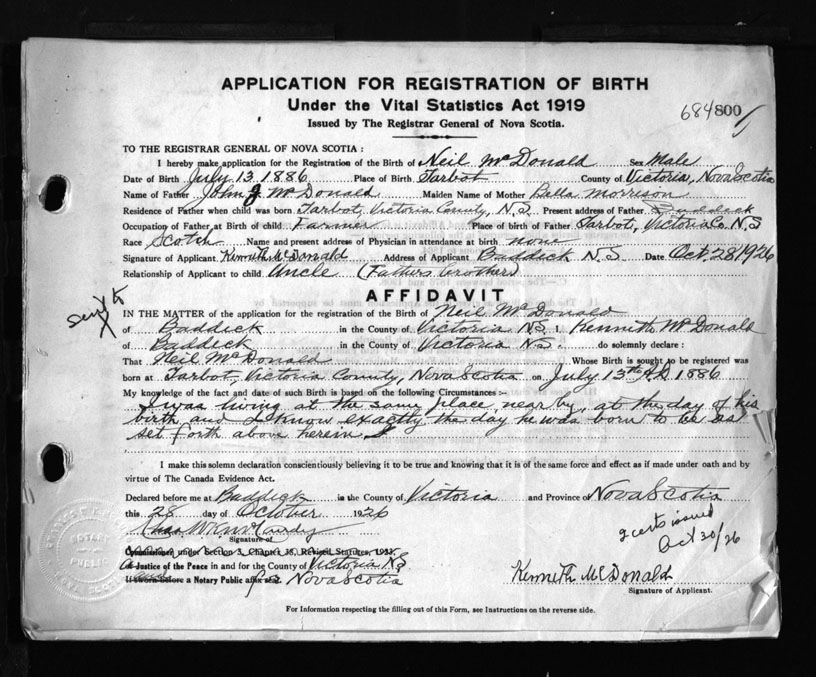 APPLICATION FOR REGISTRATION OF BIRTH
Under the Vital Statistics Act 1919
684800
Issued by The Registrar General of Nova Scotia.
TO THE REGISTRAR GENERAL OF NOVA SCOTIA :
I hereby make application for the Registration of the Birth of Neil McDonald Sex Male
Date of Birth July 13 1886 Place of Birth Tarbot County of Victoria, Nova Scotia
Name of Father John J McDonald Maiden Name of Mother Bella Morrison
Residence of Father when child was born Tarbot, Victoria County, N.S. Present address of Father
Occupation of Father at Birth of child Farmer Place of birth of Father Tarbot, Victoria Co. N.S
Race Scotch Name and present address of Physician in attendance at birth none
Signature of Applicant Kenneth McDonald Address of Applicant Baddeck N.S. Date Oct. 28 1926
Relationship of Applicant to child Uncle (Fathers brother)
AFFIDAVIT
IN THE MATTER of the application for the registration of the Birth of Neil McDonald
of Baddeck in the County of Victoria N.S. I, Kenneth McDonald
of Baddeck in the County of Victoria N.S. do solemnly declare :
That Neil McDonald Whose Birth is sought to be registered was
born at Tarbot, Victoria County, Nova Scotia on July 13th A.D. 1886
My knowledge of the fact and date of such Birth is based on the following Circumstances :-
I was living at the same place, near by, at the day of his
birth and I know exactly the day he was born to be as
set forth above herein
I make this solemn declaration conscientiously believing it to be true and knowing that it is of the same force and effect as if made under oath and by
virtue of The Canada Evidence Act.
Declared before me at Baddeck in the County of Victoria and Province of Nova Scotia
this 28 day of October 1926
Signature of
2 certs issued
Oct 30/26
Commissioner under Section 3, Chapter 38, Revised Statutes,
A Justice of the Peace in and for the County of Victoria N.S.
If sworn before a Notary Public affix seal. Nova Scotia
Kenneth McDonald
Signature of Applicant.
For Information respecting the filling out of this Form, see Instructions on the reverse side.
NOTARY
PUBLIC